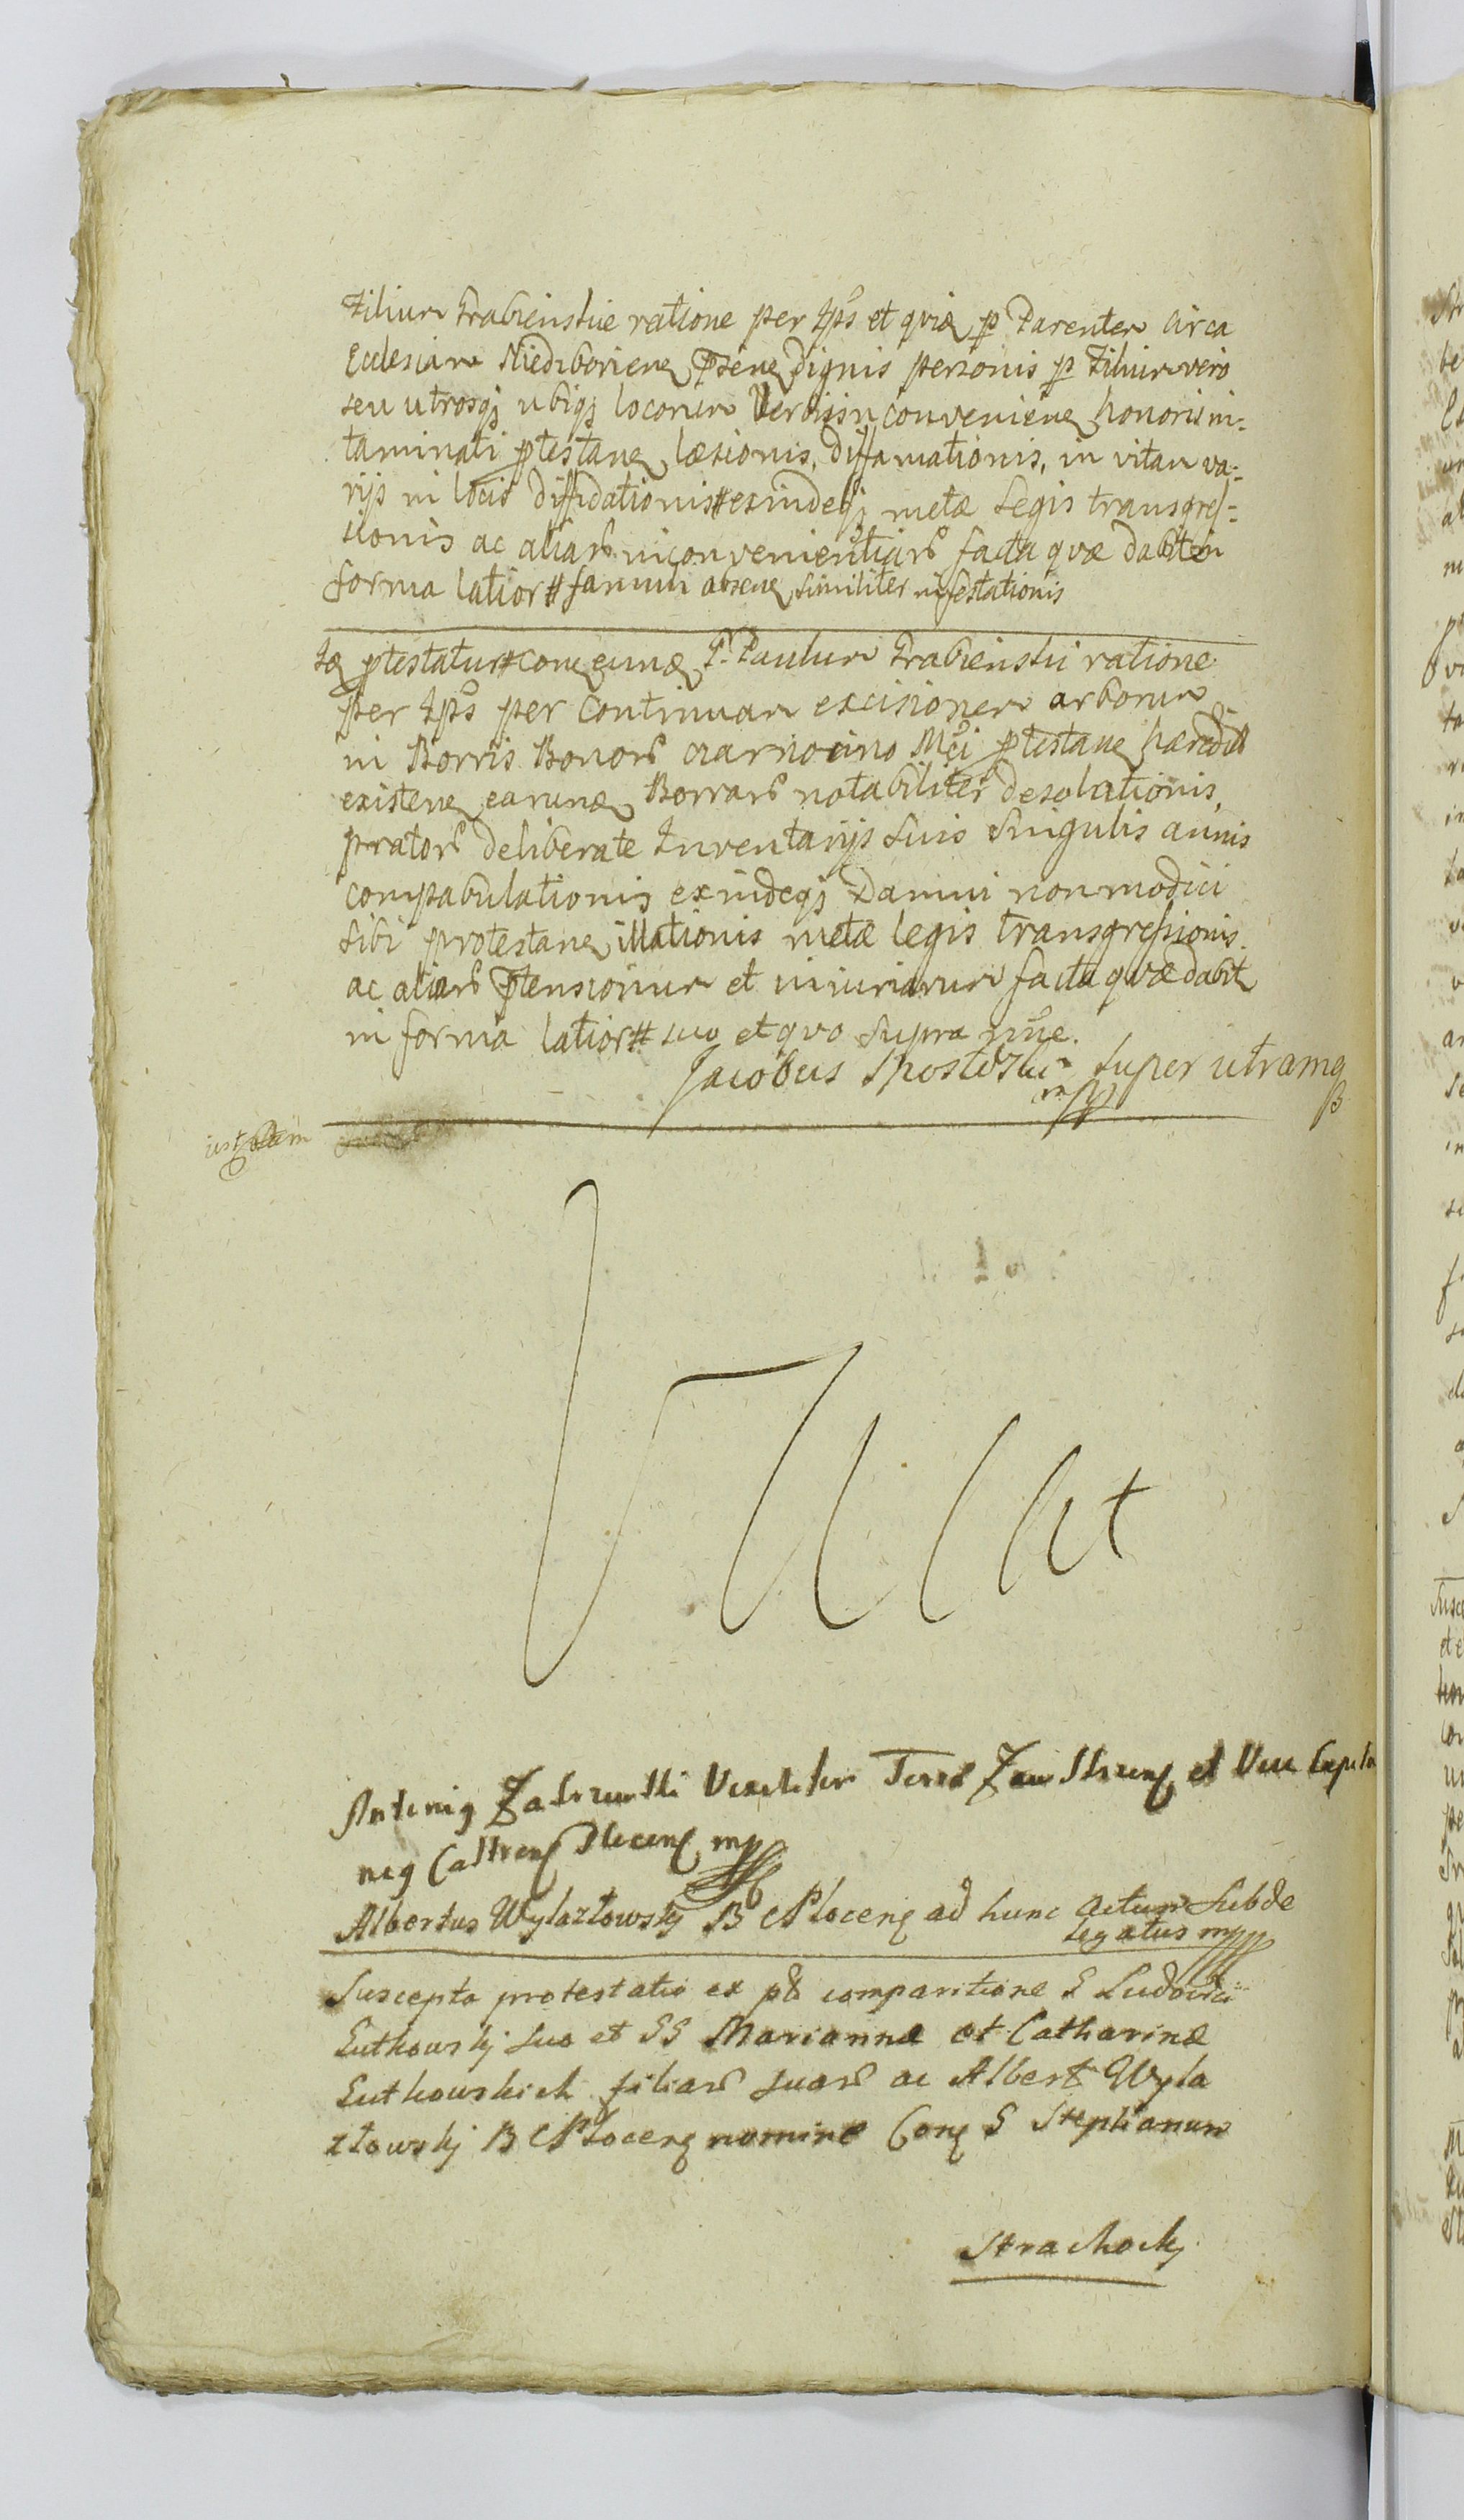 Filium Trabienskie ratione per Ips et quia p Parentem circa
Ecclesiam Niedzborien psen dignis personis p Filium vero
seu utrosq ubiq locorum Verbis inconvenien honoris in=
taminati ptestan læsionis, diffamationis, in vitam va=
rijs in locis diffidationis exindeq metæ Legis transgres=
sionis ac aliar inconvenientiar facta quæ dabit in
forma latiori famuli absen similiter infestationis
Ia ptestatur con eund P. Paulum Trabienski ratione
per Ips per continuam excisionem arborum
in Borris Bonor Czarnocino Mci ptestan hæredit
existen earund Borrar notabiliter desolationis,
prator deliberate Inventarijs suis singulis annis
compabulationis exindeq Damni non modici
sibi protestan illationis metæ legis transgressionis
ac aliar ptensionum et iniuriarum facta quæ dabit
in forma latiori suo et quo supra nne.
Jacobus super utramq
mpp
Vacat
Antonig Vexilifer Terræ Zawskrzen et Vice Capita
neg Castren Plocen mpp
Albertus Wylazłowskj B C Plocen ad hunc actum Subde
legatus mppp
Suscepta protestatio ex p comparitione G Ludovici
Lutkowskj suo et GG Mariannæ et Catharinæ
Lutkowskich filiar suar ac Albert Wyla
złowskj B C Plocen nomine Con G Stephanum
Strachocky